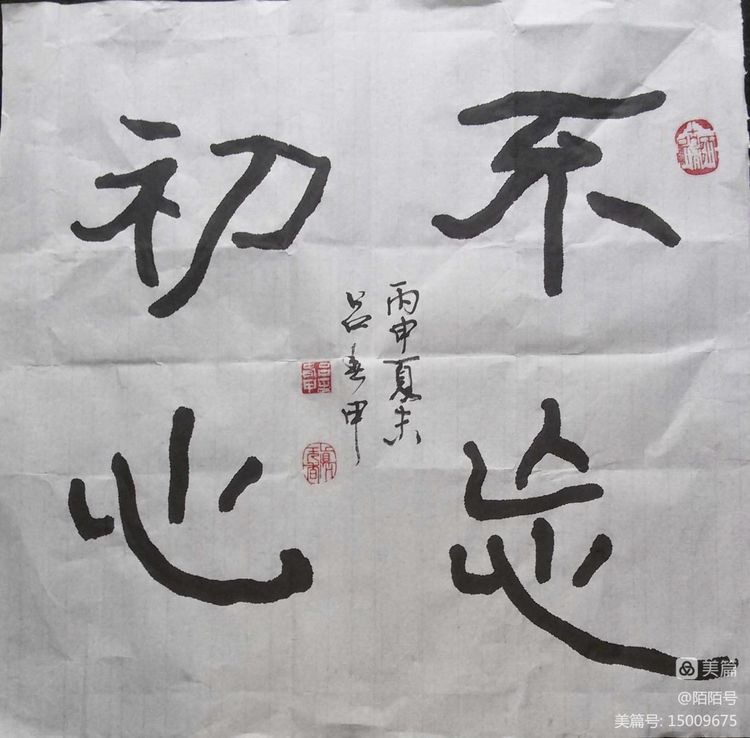 不忘
初心
丙申夏末
吕春申
美篇
@陌陌号
美篇号: 15009675